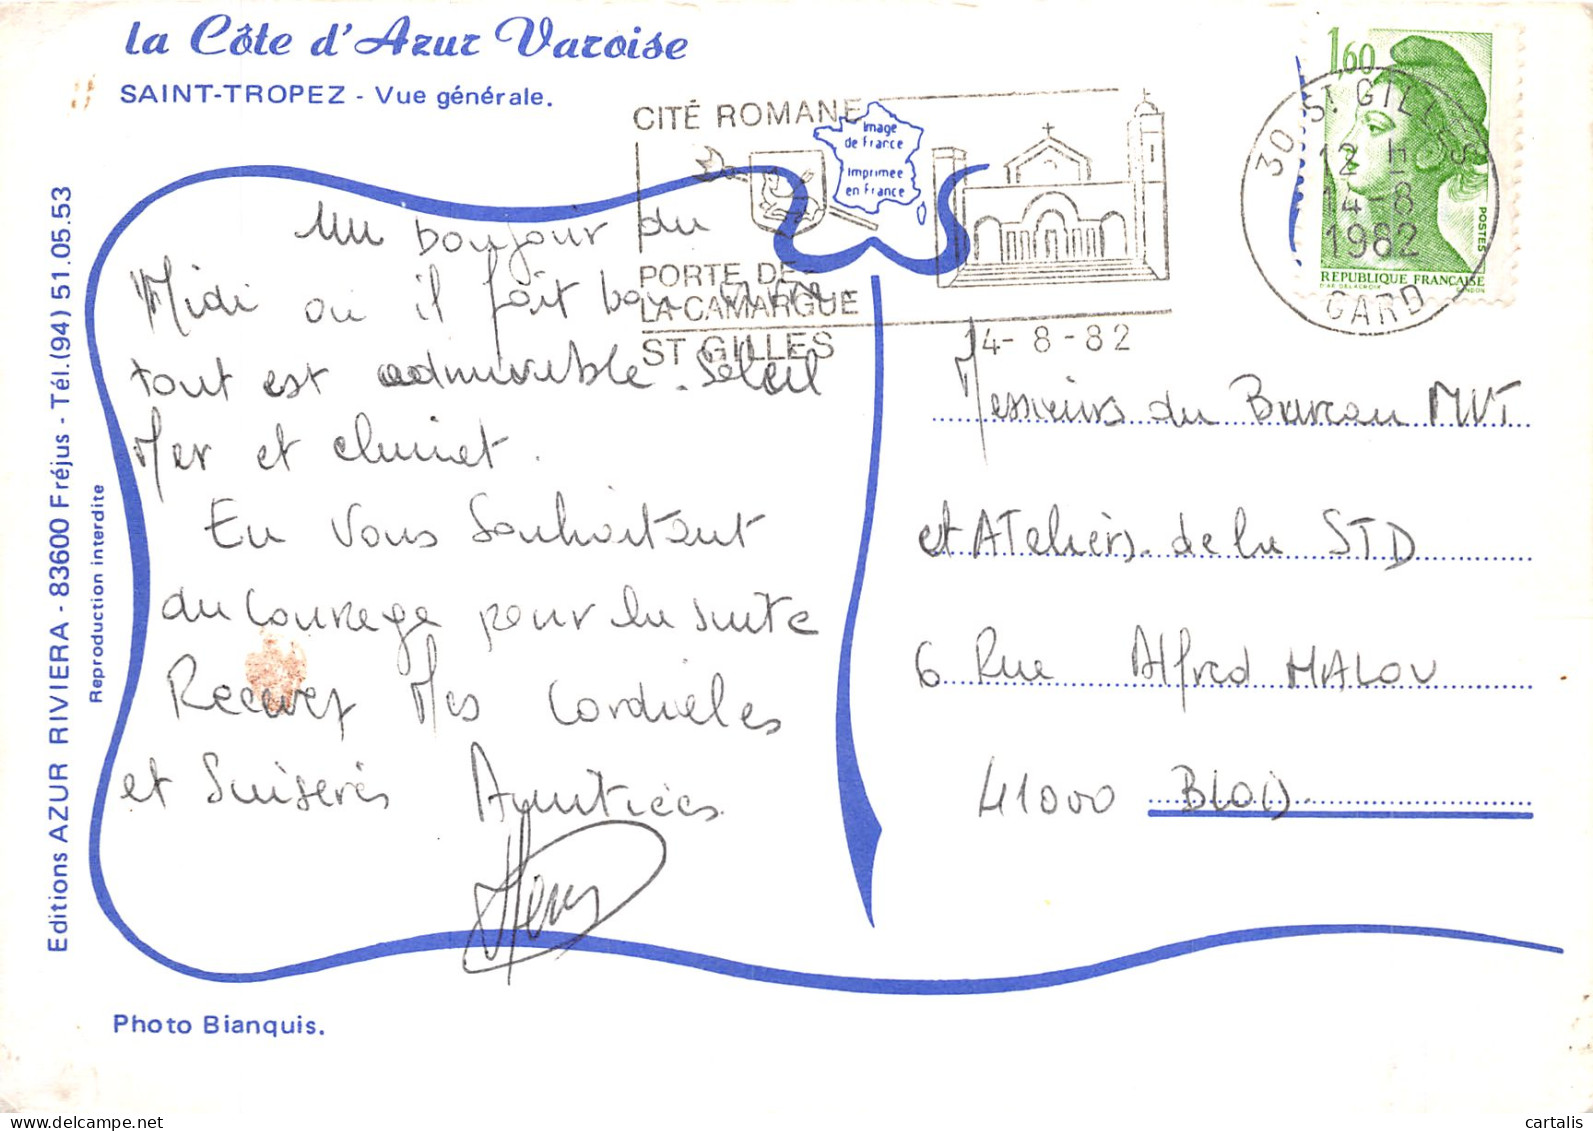 la Côte d'Azur Varoise
SAINT-TROPEZ - Vue générale.
CITÉ ROMANE
PORTE DE
LA CAMARGUE
ST GILLES
Image
de France
Imprimée
en France
14-8-82
1,60
POSTES
REPUBLIQUE FRANÇAISE
30 ST GILLES
12 H
14-8
1982
GARD
Un bonjour du
Midi ou il fait bon vivre.
tout est admirable. Soleil
Mer et climat.
En vous souhaitant
du courage pour la suite
Recevez Mes Cordiales
et Sincères Amitiées
Messieurs du Bureau MVT
et ATeliers de la STD
6 Rue Alfred MALOU
41000 BLOIS
Editions AZUR RIVIERA - 83600 Fréjus - Tél.(94) 51.05.53
Reproduction interdite
Photo Bianquis.
cartalis